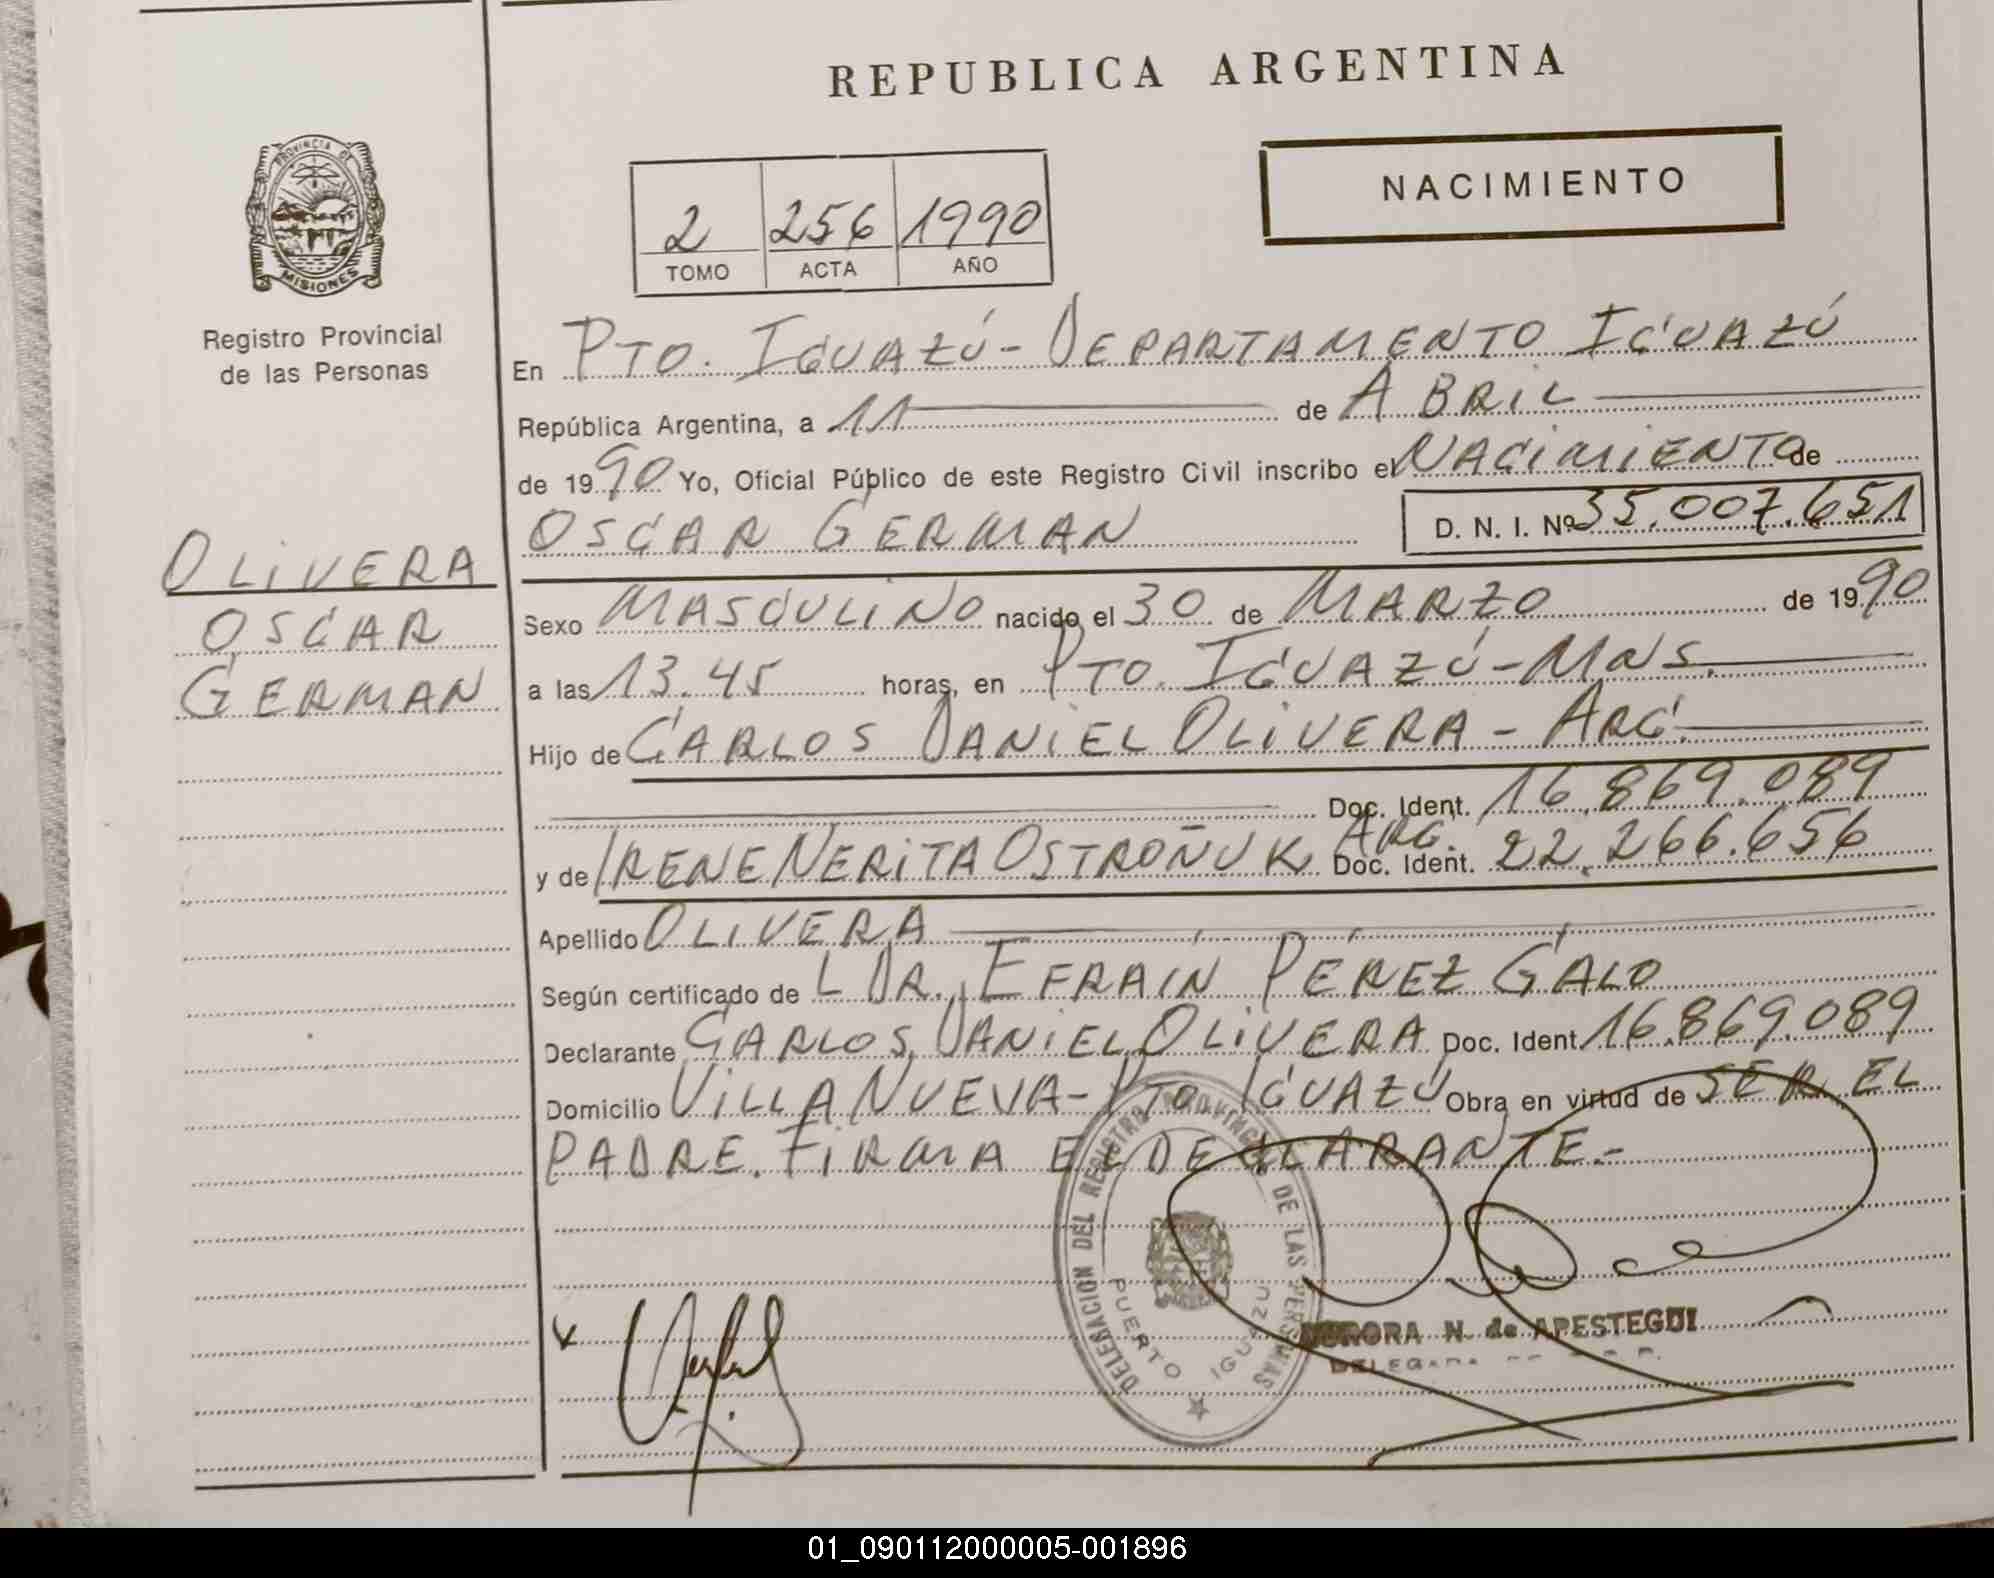 REPUBLICA ARGENTINA
NACIMIENTO
2 256 1990
TOMO ACTA AÑO
PROVINCIA DE
MISIONES
Registro Provincial
de las Personas
OLIVERA
OSCAR
GERMAN
En PTO. IGUAZÚ - DEPARTAMENTO IGUAZÚ
República Argentina, a 11 de ABRIL
de 1990 Yo, Oficial Público de este Registro Civil inscribo el NACIMIENTO de
OSCAR GERMAN D. N. I. Nº 35.007.651
Sexo MASCULINO nacido el 30 de MARZO de 1990
a las 13.45 horas, en PTO. IGUAZÚ - MNS.
Hijo de CARLOS DANIEL OLIVERA - ARG.
Doc. Ident. 16.869.089
y de IRENE NERITA OSTROÑUK ARG. Doc. Ident. 22.266.656
Apellido OLIVERA
Según certificado de L DR. EFRAÍN PÉREZ GALO
Declarante CARLOS DANIEL OLIVERA Doc. Ident. 16.869.089
Domicilio VILLA NUEVA - PTO IGUAZÚ Obra en virtud de SER EL
PADRE. FIRMA EL DECLARANTE.-
DELEGACION DEL REGISTRO PROVINCIAL DE LAS PERSONAS
PUERTO IGUAZU
AURORA N. de APESTEGUI
01_090112000005-001896